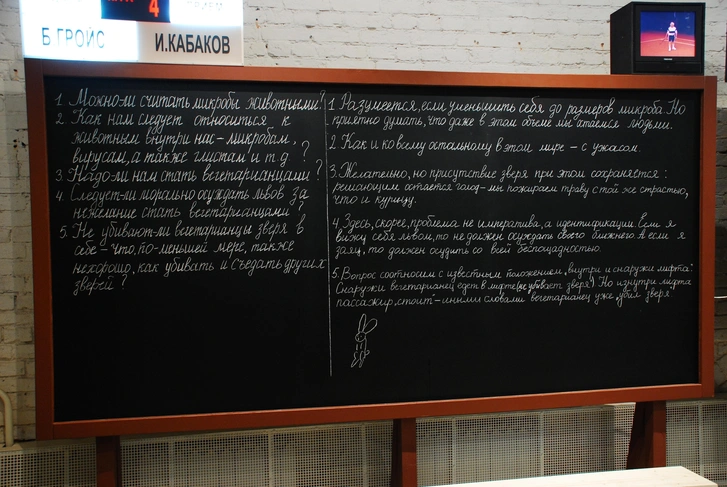 4
Б.ГРОЙС
И.КАБАКОВ
1. Можно ли считать микробы животными?
2 Как нам следует относиться к
животным внутри нас – микробам,
вирусам, а также глистам и т.д ?
3 Надо ли нам стать вегетарианцами ?
4. Следует ли морально осуждать львов за
нежелание стать вегетарианцами ?
5. Не убивают ли вегетарианцы зверя в
себе – что, по-меньшей мере, также
нехорошо, как убивать и съедать других
зверей ?
1 Разумеется, если уменьшить себя до размеров микроба. Но
приятно думать, что даже в этом объеме мы остаемся людьми.
2 Как и ко всему остальному в этом мире – с ужасом.
3. Желательно, но присутствие зверя при этом сохраняется :
решающим остается голод – мы пожираем траву с той же страстью,
что и курицу.
4 Здесь, скорее, проблема не императива, а идентификации. Если я
вижу себя львом, то не должен осуждать своего ближнего. А если я
заяц, то должен осудить со всей беспощадностью.
5. Вопрос соотносим с известным положением „внутри и снаружи лифта".
Снаружи вегетарианец едет в лифте (не убивает зверя). Но изнутри лифта
пассажир „стоит" – иными словами вегетарианец уже „убил зверя".